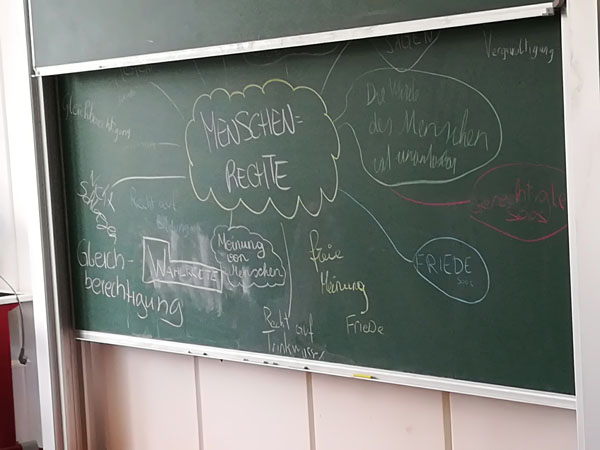 SAGEN
Vergewaltigung
Gleichberechtigung
MENSCHEN=
RECHTE
Die Würde
des Menschen
ist unantastbar
Recht auf
Gerechtigkeit
FRIEDE
Gleich-
berechtigung
WAHLRECHTE
Meinung
von
Menschen
freie
Meinung
Recht auf
Trinkwasser
Friede